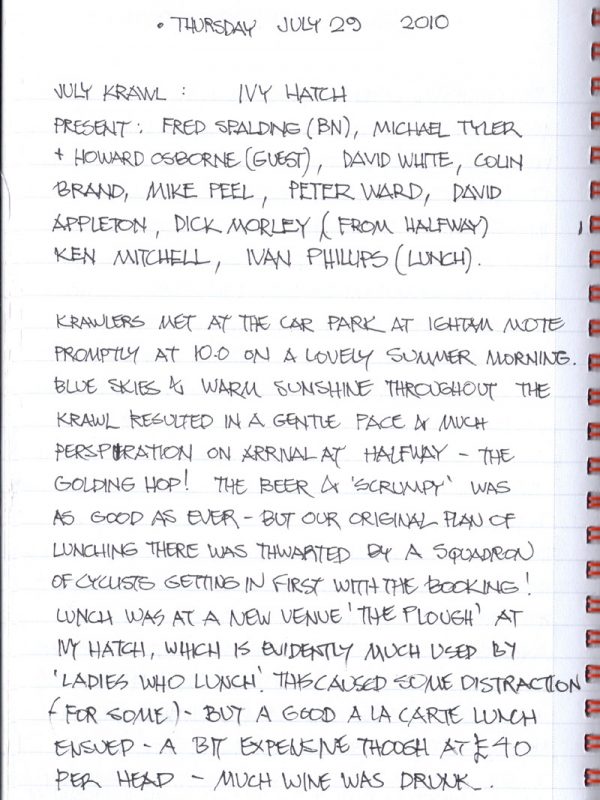 • THURSDAY JULY 29 2010
JULY KRAWL : IVY HATCH
PRESENT : FRED SPALDING (BN), MICHAEL TYLER
+ HOWARD OSBORNE (GUEST), DAVID WHITE, COLIN
BRAND, MIKE PEEL, PETER WARD, DAVID
APPLETON, DICK MORLEY ( FROM HALFWAY)
KEN MITCHELL, IVAN PHILLIPS (LUNCH).
KRAWLERS MET AT THE CAR PARK AT IGHTAM MOTE
PROMPTLY AT 10.0 ON A LOVELY SUMMER MORNING.
BLUE SKIES & WARM SUNSHINE THROUGHOUT THE
KRAWL RESULTED IN A GENTLE PACE & MUCH
PERSPIRATION ON ARRIVAL AT HALFWAY - THE
GOLDING HOP! THE BEER & 'SCRUMPY' WAS
AS GOOD AS EVER - BUT OUR ORIGINAL PLAN OF
LUNCHING THERE WAS THWARTED BY A SQUADRON
OF CYCLISTS GETTING IN FIRST WITH THE BOOKING!
LUNCH WAS AT A NEW VENUE 'THE PLOUGH' AT
IVY HATCH, WHICH IS EVIDENTLY MUCH USED BY
'LADIES WHO LUNCH'. THIS CAUSED SOME DISTRACTION
(FOR SOME) - BUT A GOOD A LA CARTE LUNCH
ENSUED - A BIT EXPENSIVE THOUGH AT £40
PER HEAD - MUCH WINE WAS DRUNK.